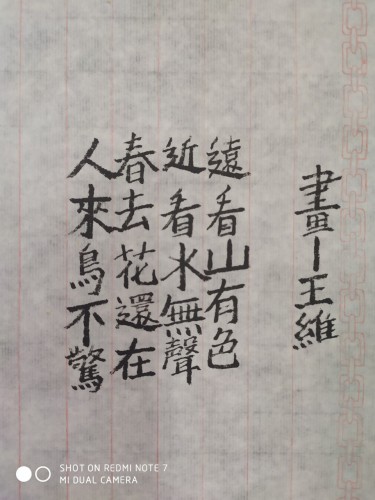 畫一王維
遠看山有色
近看水無聲
春去花還在
人來鳥不驚
SHOT ON REDMI NOTE 7
MI DUAL CAMERA